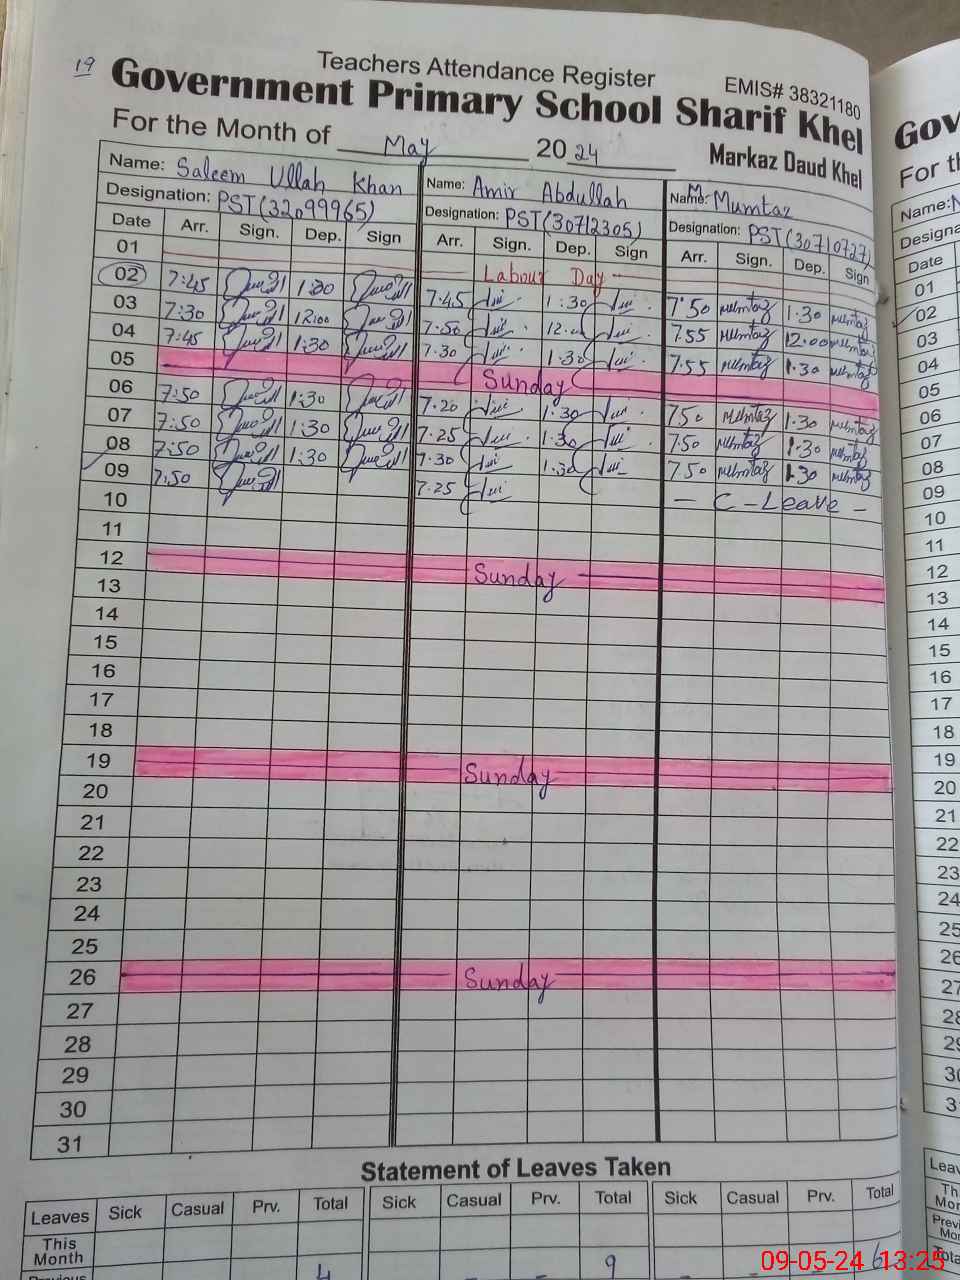 19
Teachers Attendance Register
EMIS# 38321180
Government Primary School Sharif Khel
For the Month of May 2024
Markaz Daud Khel
Name: Saleem Ullah Khan Name: Amir Abdullah Name: M. Mumtaz
Designation: PST(32099965) Designation: PST(30712305) Designation: PST(30710727)
Date Arr. Sign. Dep. Sign Arr. Sign. Dep. Sign Arr. Sign. Dep. Sign
01 Labour Day
02 7:45 1:30 7.45 1:30 7:50 Mumtaz 1.30 Mumtaz
03 7:30 12:00 7:50 12.00 7.55 Mumtaz 12.00 Mumtaz
04 7:45 1:30 7.30 1:30 7.55 Mumtaz 1.30 Mumtaz
05 Sunday
06 7:50 1:30 7.20 1:30 7.50 Mumtaz 1.30 Mumtaz
07 7:50 1:30 7.25 1:30 7.50 Mumtaz 1.30 Mumtaz
08 7:50 1:30 7.30 1:30 7.50 Mumtaz 1.30 Mumtaz
09 7:50 7.25 - C - Leave -
10
11
12 Sunday
13
14
15
16
17
18
19 Sunday
20
21
22
23
24
25
26 Sunday
27
28
29
30
31
Statement of Leaves Taken
Leaves Sick Casual Prv. Total Sick Casual Prv. Total Sick Casual Prv. Total
This
Month
4 - - 9 - - - 6
09-05-24 13:25
Gov
For th
Name:
Designa
Date
01
02
03
04
05
06
07
08
09
10
11
12
13
14
15
16
17
18
19
20
21
22
23
24
25
26
27
28
29
30
3
Leav
Th
Mor
Previ
Mo
Tota